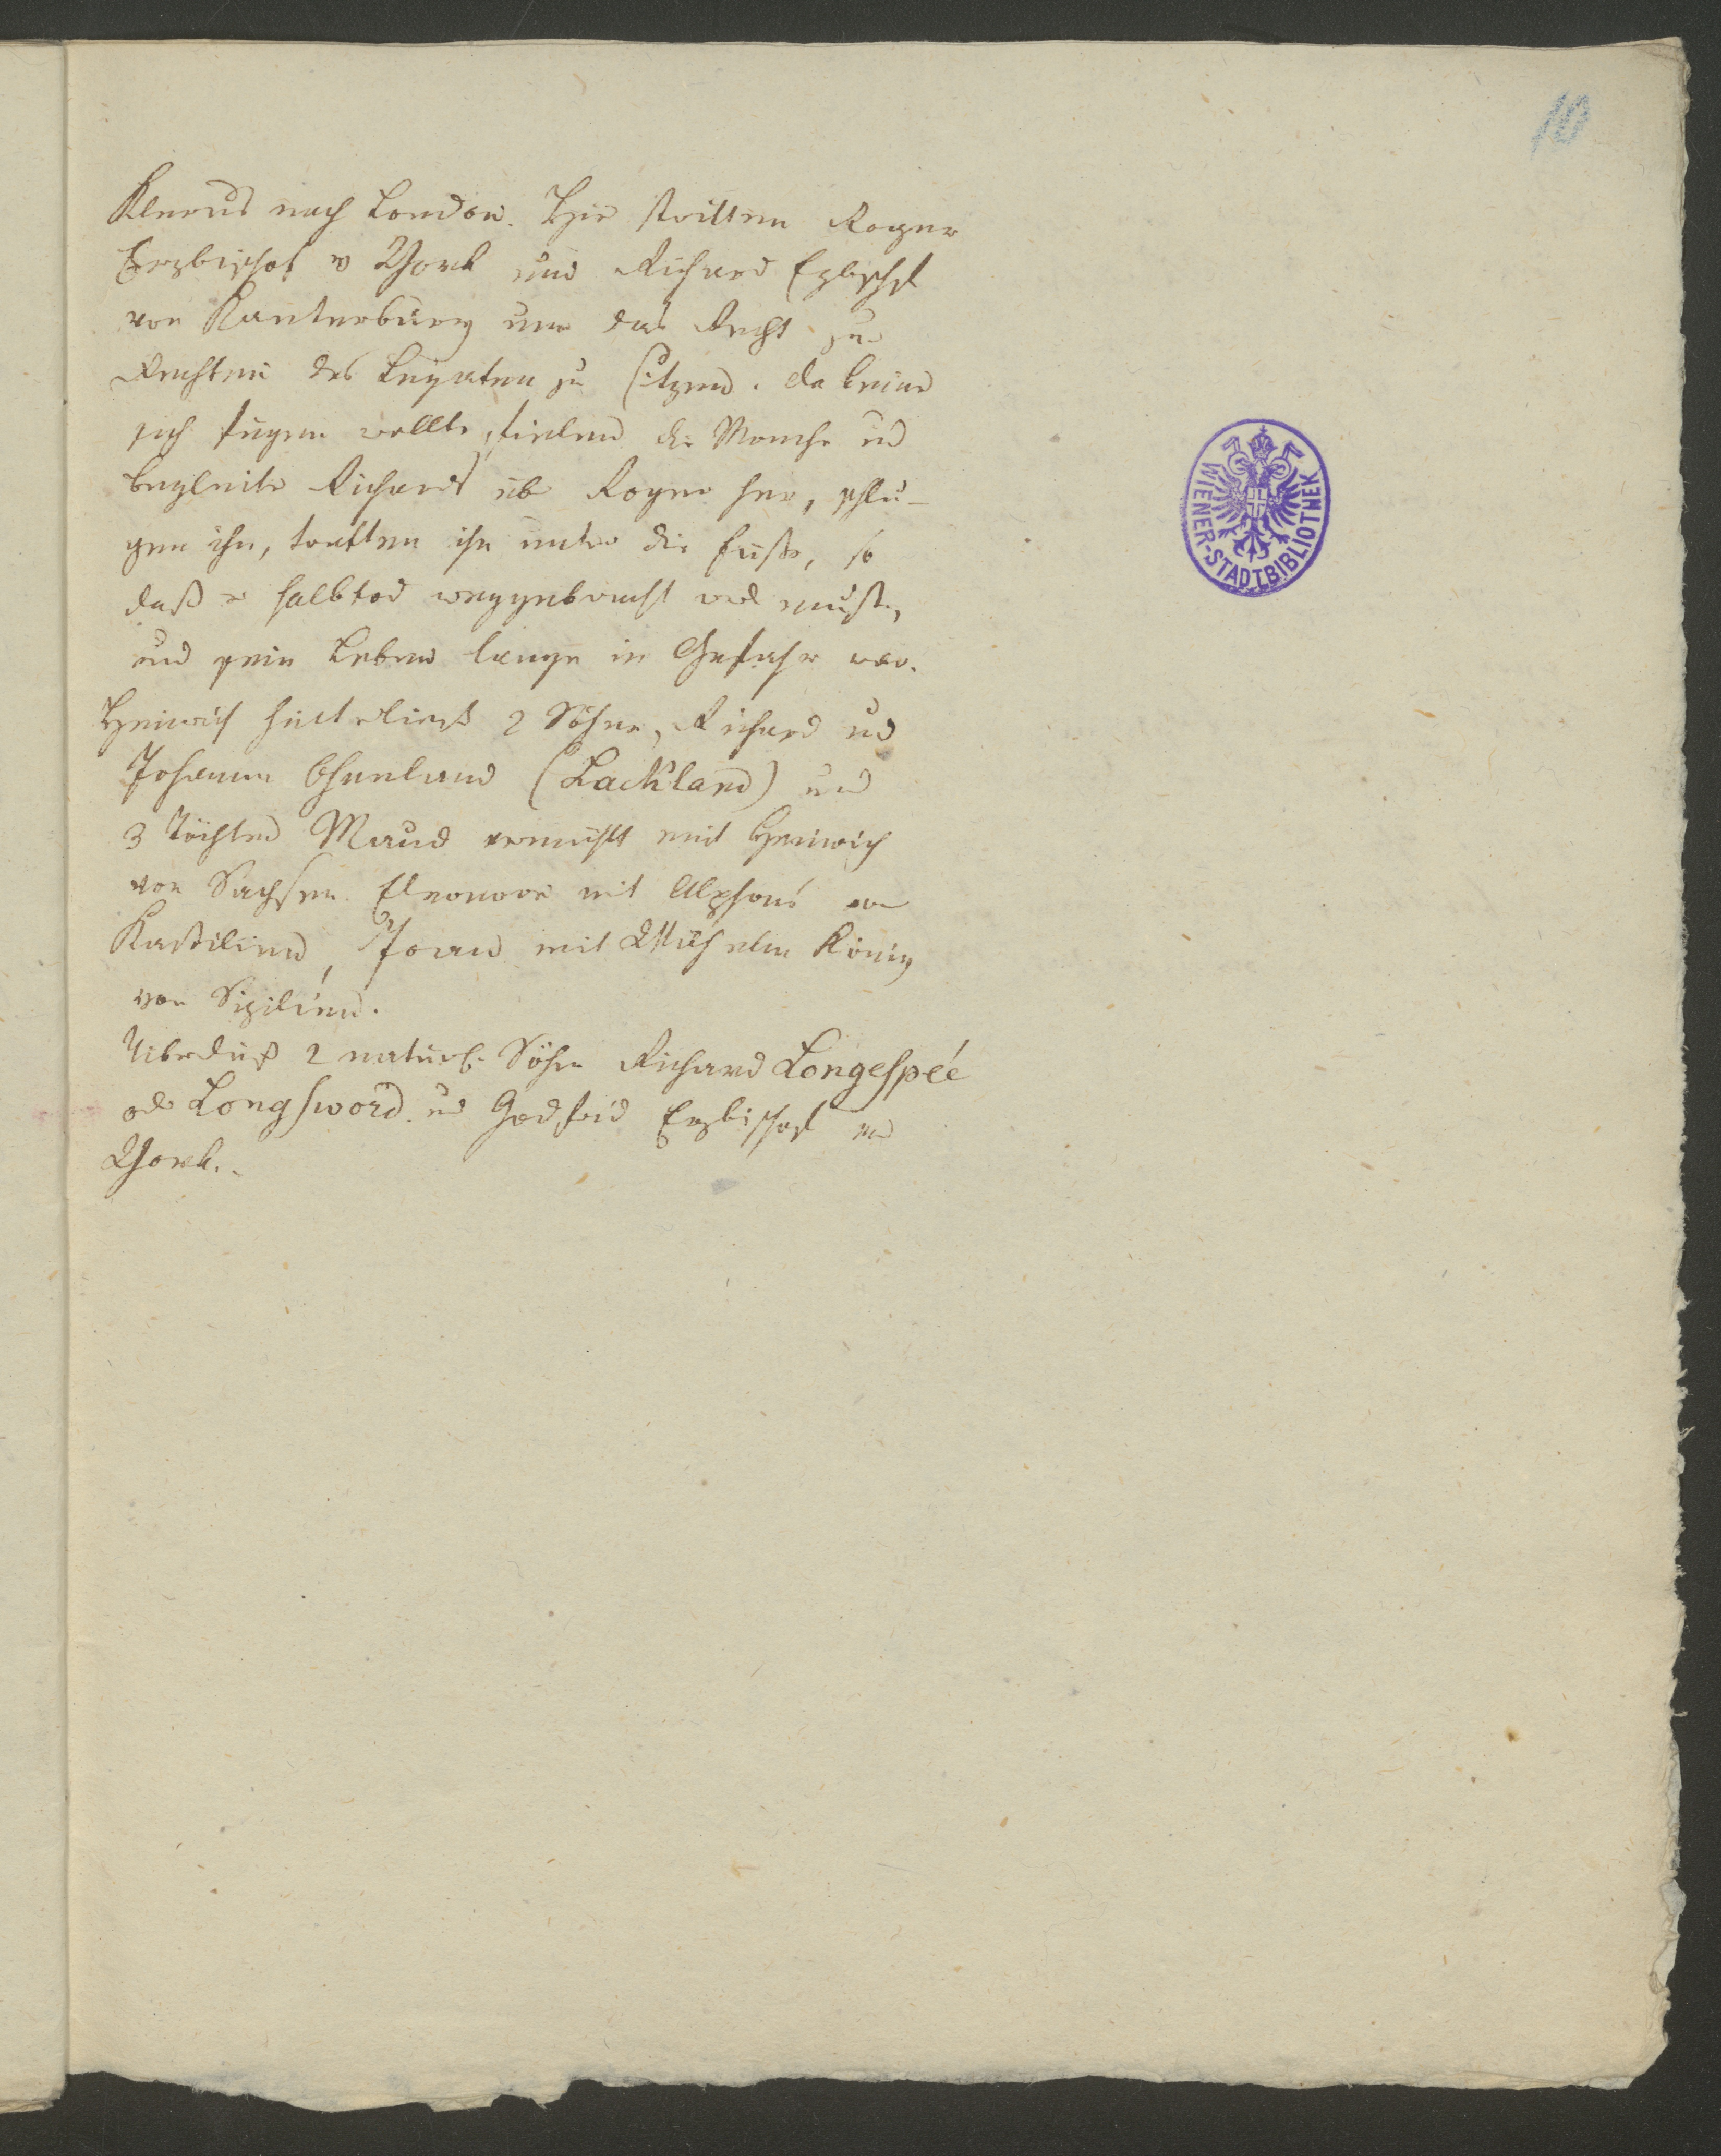 10
Klerus nach London. Hier stritten Roger
Erzbischof v York und Richard Ezbischf
von Kanterbury um das Recht zur
Rechten des Legaten zu sitzen. Da keiner
sich fügen wollte, fielen die Mönche und
Begleiter Richards über Roger her, schlu-
gen ihn, tratten ihn unter die Füße, so
daß er halbtod weggebracht werd mußte,
und sein Leben lange in Gefahr war.
Heinrich hinterließ 2 Söhne, Richard und
Johann Ohneland (Lackland) und
3 Töchter Maud vermählt mit Heinrich
von Sachsen. Eleonore mit Alphons von
Kastilien, Joan mit Wilhelm König
von Sizilien.
Uiberdieß 2 natürl. Söhne Richard Longespée
oder Longsword. und Godfrid Erzbischof von
York.
WIENER-STADTBIBLIOTHEK